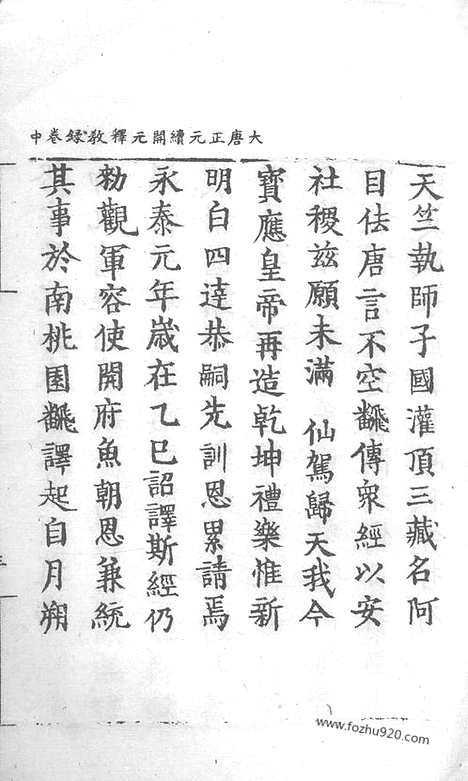 大唐正元續開元釋教録卷中
天竺執師子國灌頂三藏名阿
目佉唐言不空飜傳衆經以安
社稷兹願未滿 仙駕歸天我今
寳應皇帝再造乾坤禮樂惟新
明白四達恭嗣先訓恩累請焉
永泰元年歳在乙巳詔譯斯經仍
勑觀軍容使開府魚朝恩兼統
其事於南桃園飜譯起自月朔
www.fozhu920.com